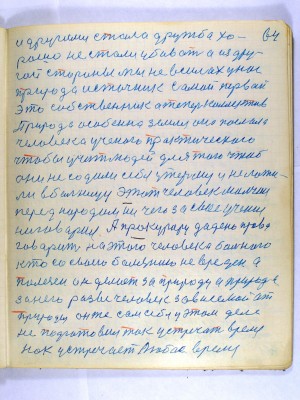 64
и другими стала дружба хо-
рошо не стали убивать а из дру-
гой стороны мы не в силах у нас
природа источник самой первой
это собственник а теперь коллектив
Природа особенно земля она послала
человека ученого практического
чтобы учит людей для того чтоб
они не садили себя утюрму и не ложи-
ли в больницу этот человек молчит
перед народом ни чего за свое учение
ни говорил. А прокурору дадено право
говарить на этого человека больного
кто со своего болезнию не вреден а
полезен он делает за природу и природа
за него разве человек зависемой от
природы он же сам себя у этом деле
не подготовил так устрекат время
как устречает Любое время